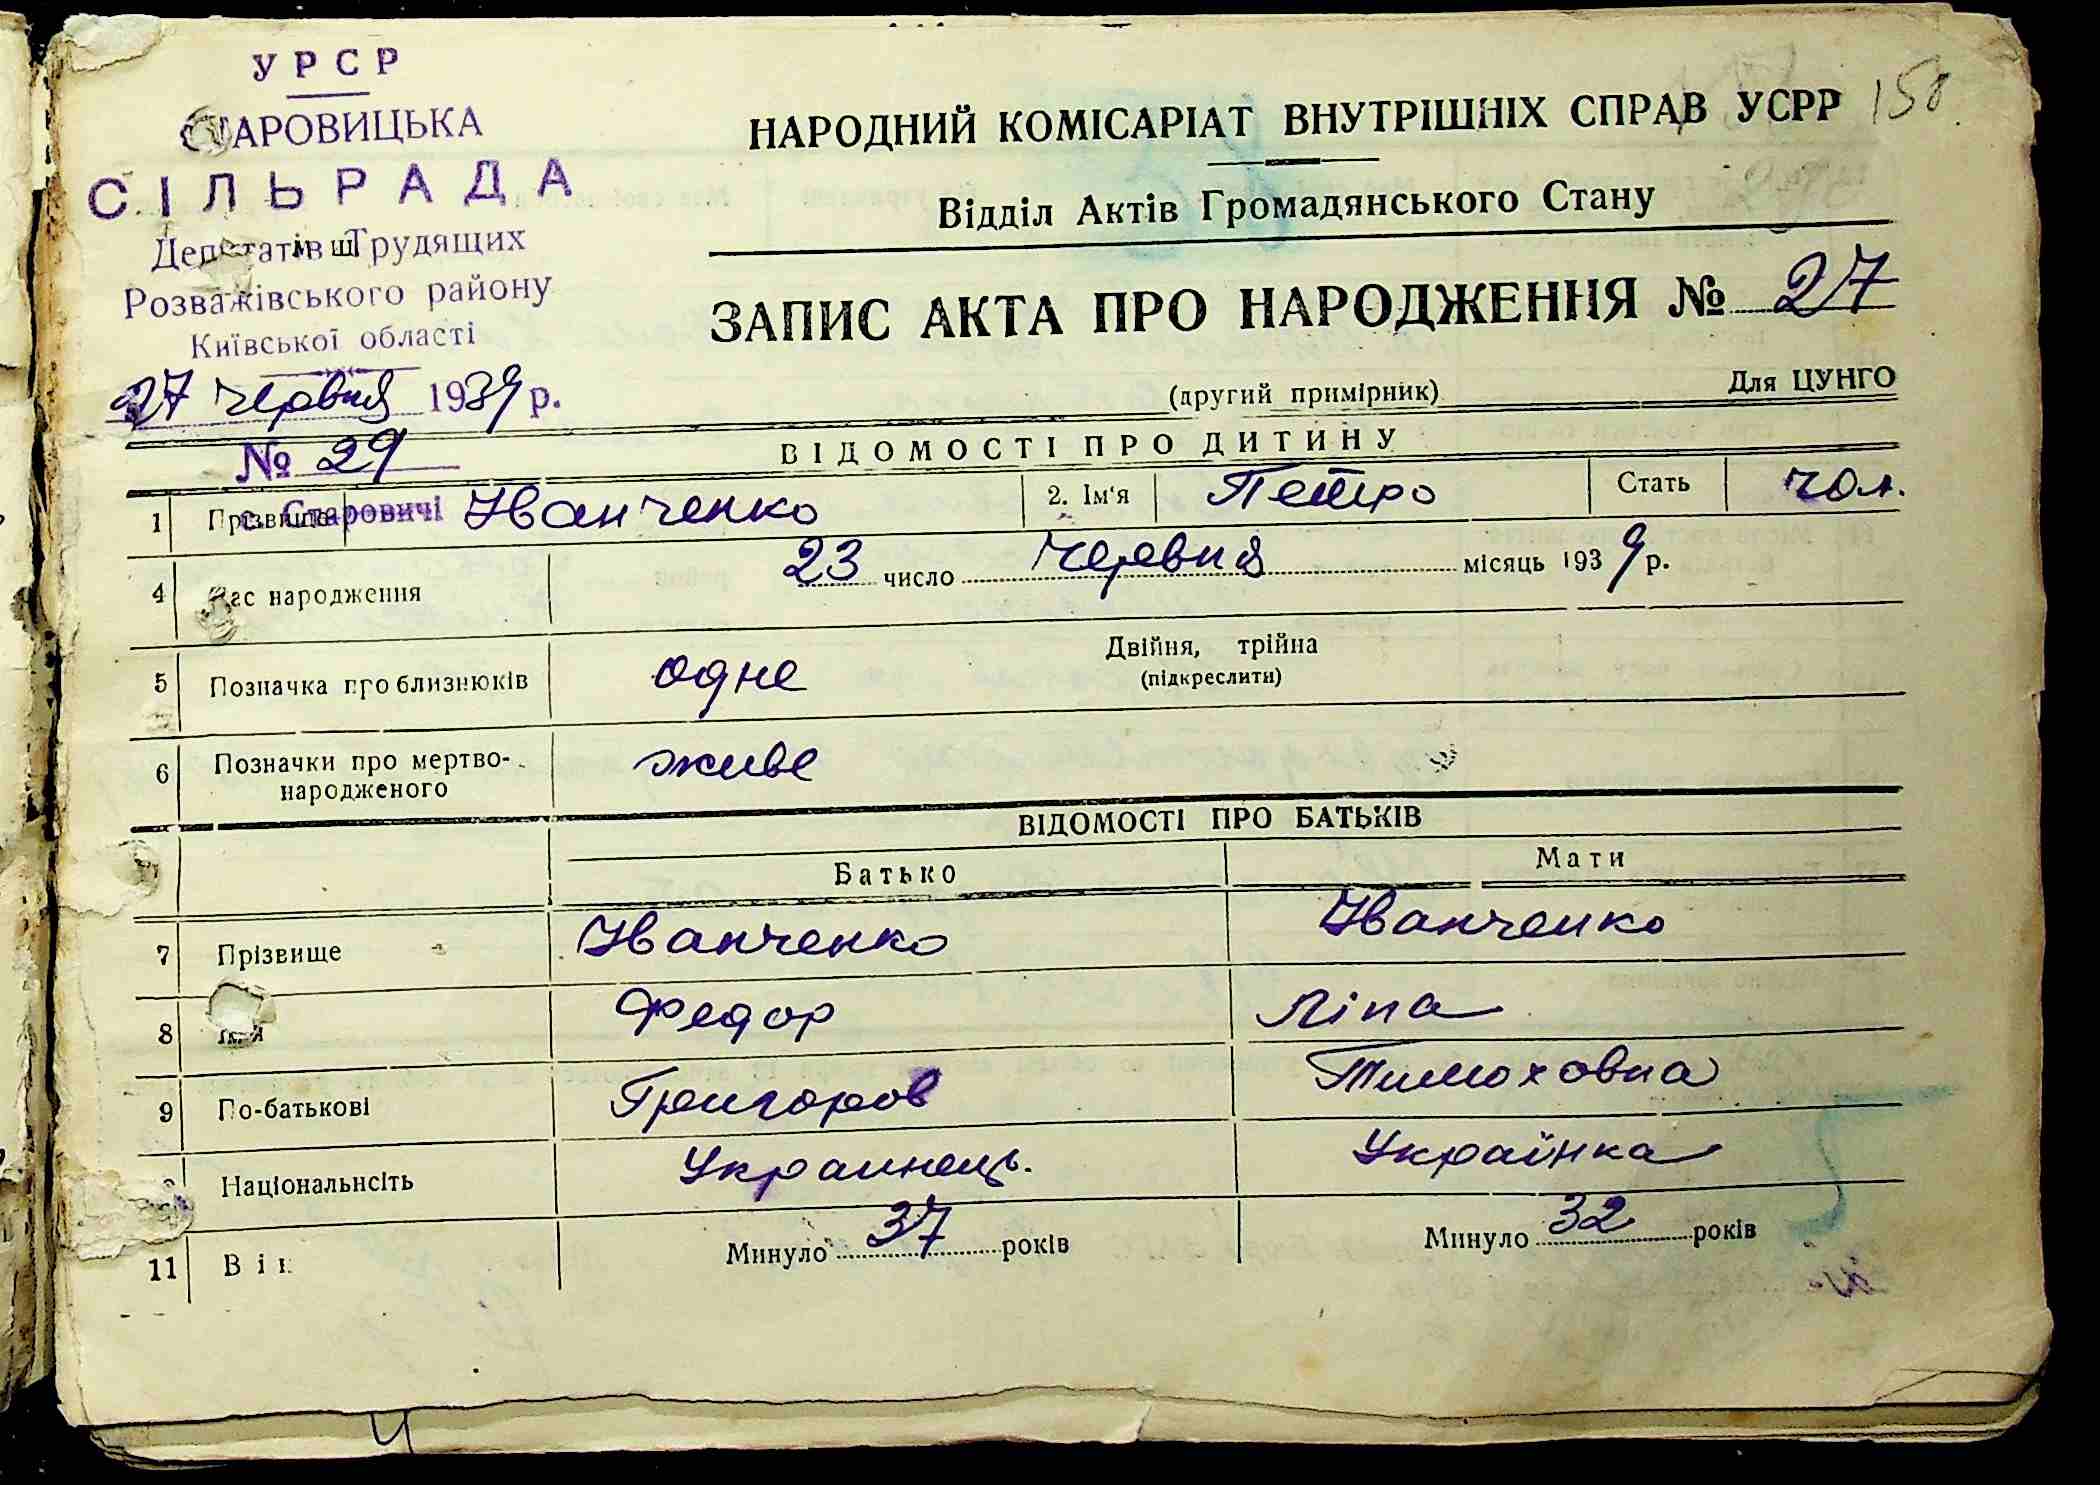 УРСР
СТАРОВИЦЬКА
СІЛЬРАДА
Депутатів Трудящих
Розважівського району
Київської області
27 червня 1939 р.
№ 29
с. Старовичі
158
НАРОДНИЙ КОМІСАРІАТ ВНУТРІШНІХ СПРАВ УСРР
Відділ Актів Громадянського Стану
ЗАПИС АКТА ПРО НАРОДЖЕННЯ № 27
(другий примірник) Для ЦУНГО
ВІДОМОСТІ ПРО ДИТИНУ
1 Прізвище Іванченко 2. Ім'я Петро Стать чол.
4 Час народження 23 число Червня місяць 1939 р.
5 Позначка про близнюків одне Двійня, трійна
(підкреслити)
6 Позначки про мертво-
народженого живе
ВІДОМОСТІ ПРО БАТЬКІВ
Батько Мати
7 Прізвище Іванченко Іванченко
8 Ім'я Федор Ліпа
9 По-батькові Григоров Тимоховна
Національність Украинець. Українка
11 Вік Минуло 37 років Минуло 32 років